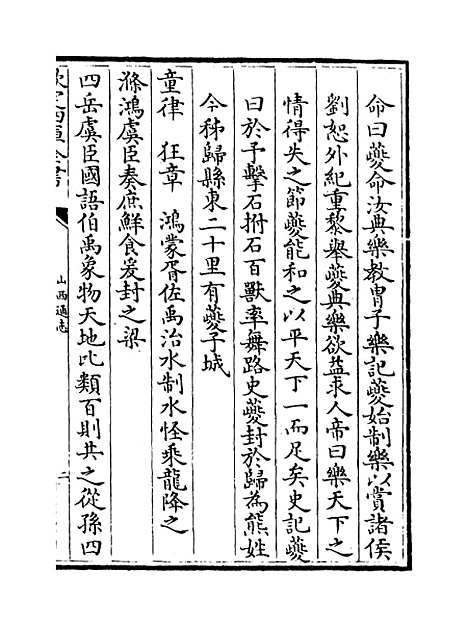 命曰夔命汝典樂教胄子樂記夔始制樂以賞諸侯
劉恕外紀重黎舉夔典樂欲益求人帝曰樂天下之
情得失之節夔能和之以平天下一而足矣史記夔
曰於予擊石拊石百獸率舞路史夔封於歸為熊姓
今秭歸縣東二十里有夔子城
童律 狂章 鴻蒙胥佐禹治水制水怪乘龍降之
滌鴻虞臣奏庶鮮食爰封之梁
四岳虞臣國語伯禹象物天地比類百則共之從孫四
欽定四庫全書
山西通志
二